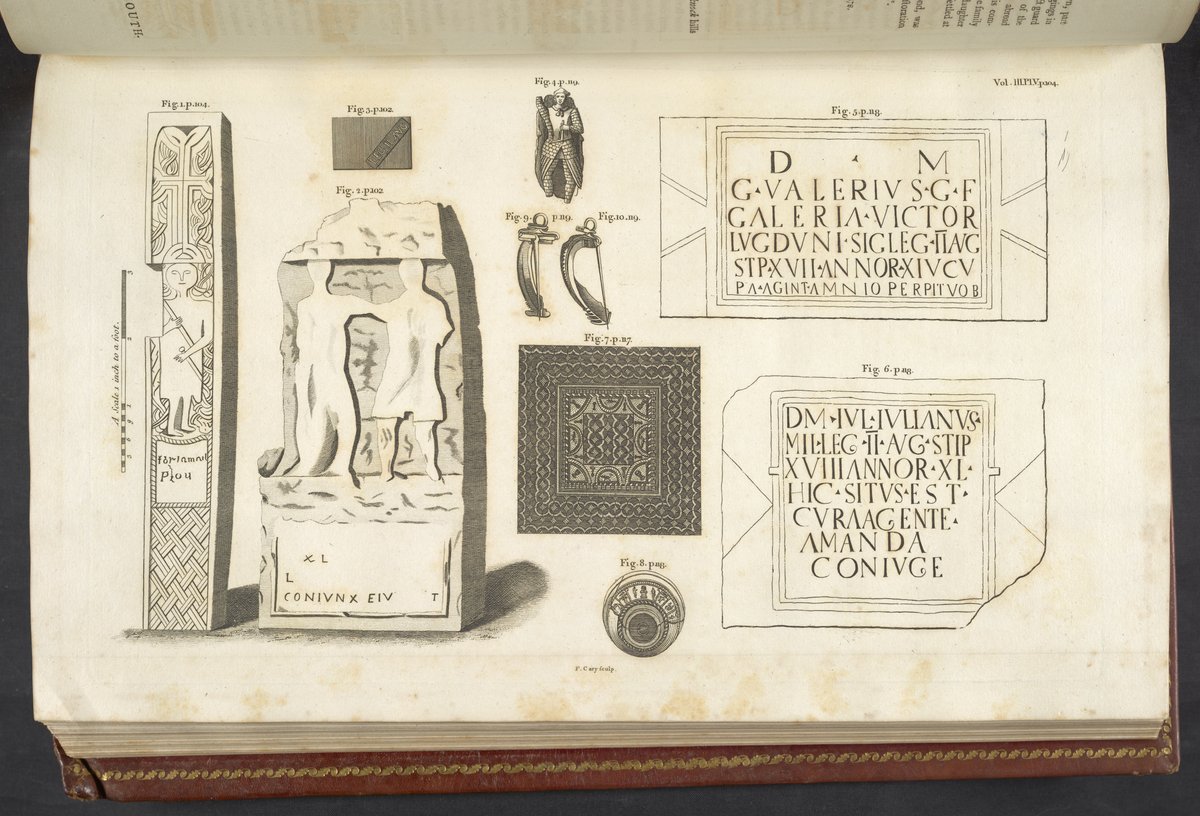 Vol. III.Pl.V.p.104.
Fig. 1. p. 104.
Fig. 3. p. 102.
Fig. 2. p. 102
Fig. 4. p. 119.
Fig. 9. p. 119.
Fig. 10. 119.
Fig. 7. p. 117.
Fig. 8. p. 118.
Fig. 5. p. 118.
D M
G·VALERIVS·G·F
GALERIA·VICTOR
LVGDVNI·SIG LEG·II AVG
STP·XVII·ANNOR·XLV CV
PA·AGINT·AMNIO PERPITVO B
Fig. 6. p. 118.
DM·IVL·IVLIANVS·
MIL·LEG·II·AVG·STIP
XVIII ANNOR·XL·
HIC·SITVS·EST·
CVRA AGENTE·
AMANDA
CONIVGE
A Scale 1 inch to a foot.
XL
L
CONIVNX EIV T
F. Cary sculp.
OUTH.